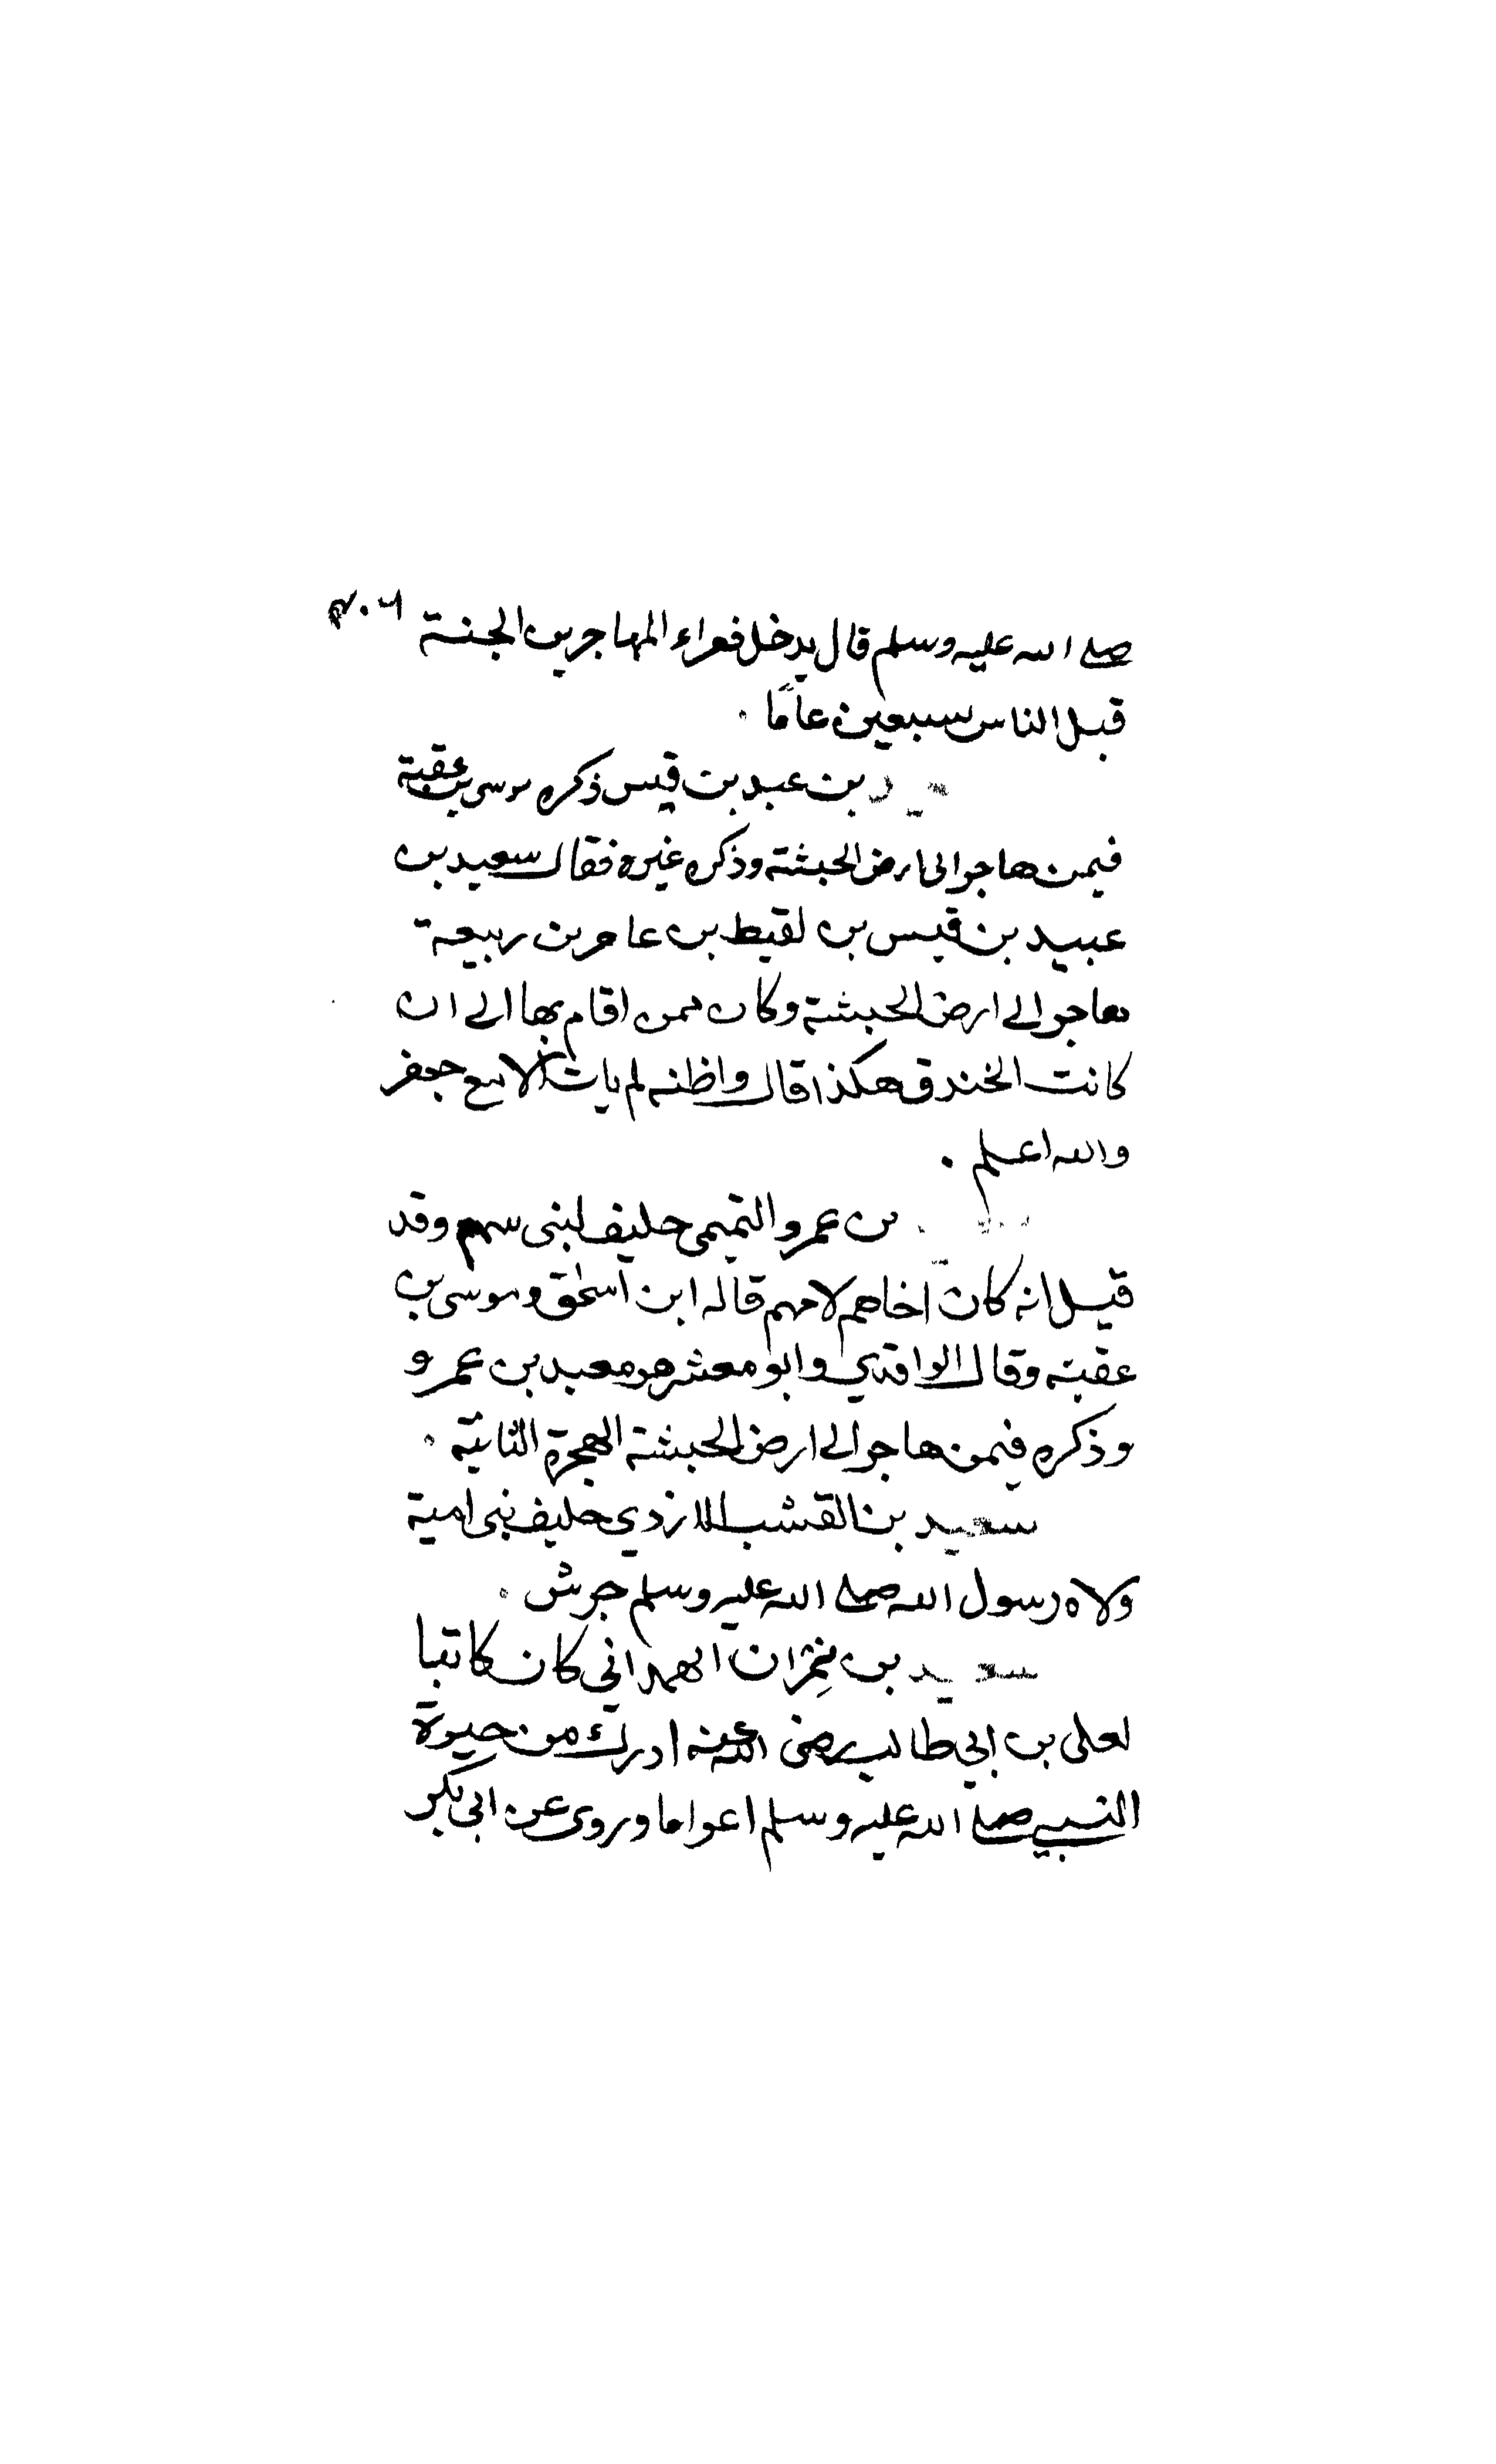 صلى الله عليه وسلم قال يدخل فقراء المهاجرين الجنة
قبل الناس سبعين عامًا .
بن عبد بن قيس ذكره موسى بن عقبة
فيمن هاجر الى ارض الحبشة وذكره غيره فقال سعيد بن
عبيد بن قيس بن لقيط بن عامر بن ربيعة
هاجر الى ارض الحبشة وكان ممن اقام بها الى ان
كانت الخندق هكذا قال واظنه لم يات الا مع جعفر
والله اعلم .
بن عمرو التميمى حليف لبنى سهم وقد
قيل انه كان اخاهم لامهم قاله ابن اسحق وموسى بن
عقبة وقال الواقدي وابو معشر هو معبد بن عمرو
وذكره فيمن هاجر الى ارض الحبشة الهجرة الثانية .
سعيد بن القشب الازدي حليف بنى امية
ولاه رسول الله صلى الله عليه وسلم جرش .
سعيد بن نِمْران الهمداني كان كاتبا
لعلى بن ابي طالب رضى الله عنه ادرك من حيوة
النبي صلى الله عليه وسلم اعواما وروى عن ابى بكر